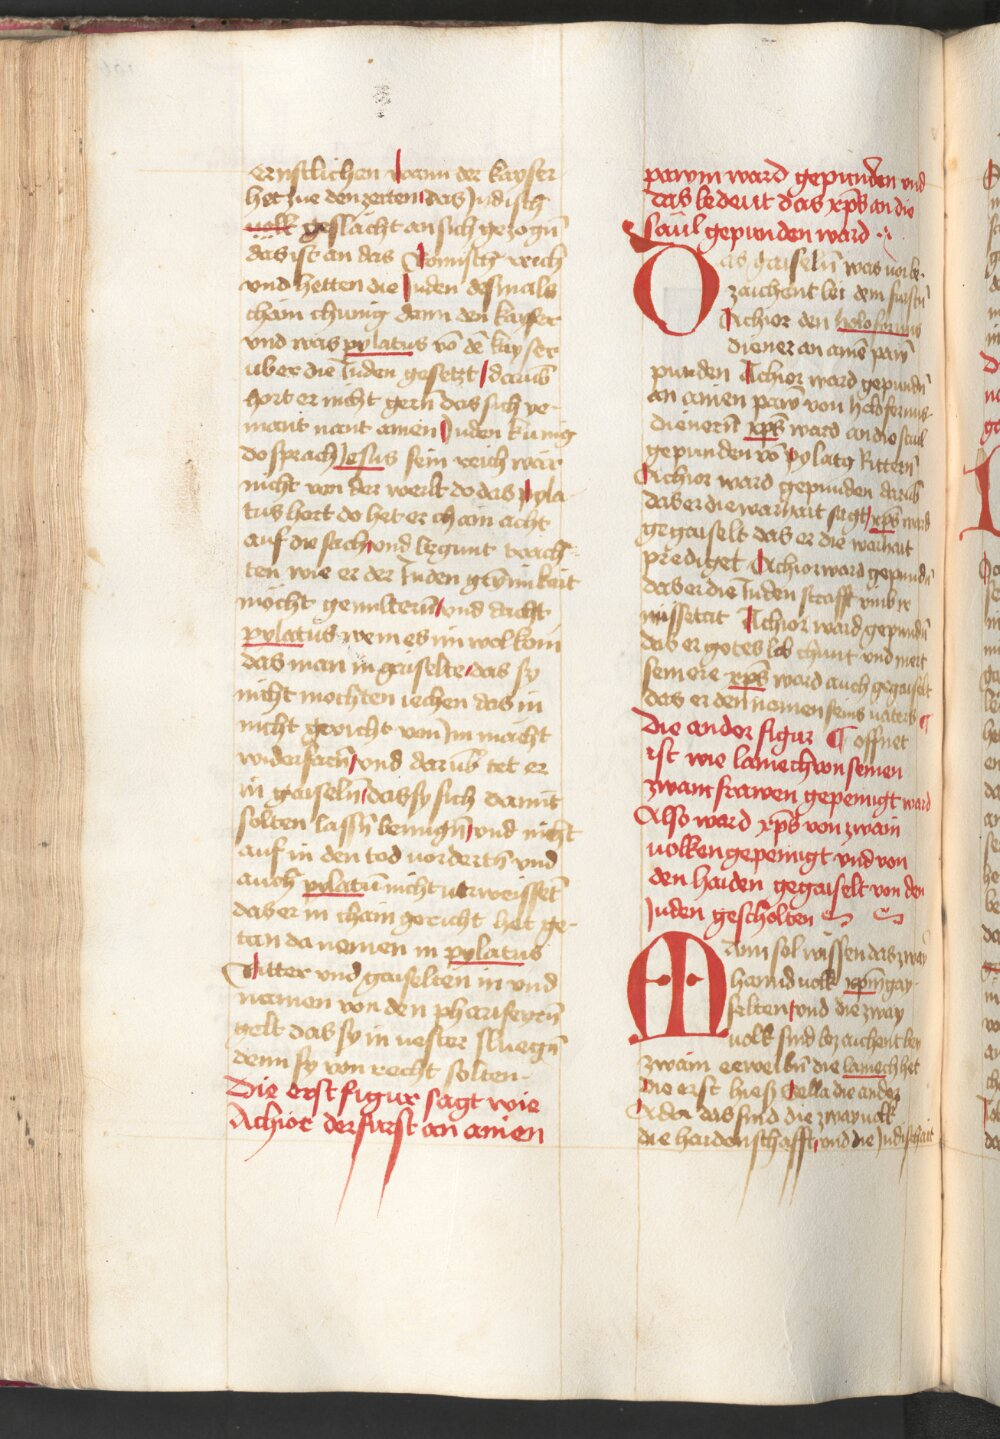 ernstlichen wann der kayser
het zue den zeiten das Judisch
volk geslächt an sich gezogn̄
das ist an das Romisch reich
vnd hetten die Juden desmals
chain chunig dann den kayser
vnd was pylatus vō dē kayser
uber die Juden gesetzt darūb
hort er nicht gern̄ das sich ye-
mant nant ainen Juden kunig
do sprach Jesus sein reich wär
nicht von der werlt do das pyla
tus hort do het er chain acht
auf die sach vnd begunt trach-
ten wie er der Juden grȳmikait
möcht gemiltern̄ vnd dacht
pylatus wenn es im wol kom
das man in gaiselte das sy
nicht mochten iechen das in
nicht gericht von Im macht
widerfarn̄ vnd darūb tet er
in gaiseln̄ das sy sich damit
solten lassn̄ benugn̄ vnd nicht
auf in den tod vordertn̄ vnd
auch pylatū nicht verweisset
das er in chain gericht het ge-
tan da nemen in pylatus
Ritter vnd gaiselten in vnd
namen von den phariseyrn̄
gelt das sy in vester sluegn̄
denn sy von recht solten.
Die erst figur sagt wie
Achior der furst an ainen
pawm ward gepunden vnd
das bedeut das xp̄s an die
Säul gepunden ward
Das gaiseln̄ was vorbe-
zaichent bei dem furstn̄
Achior den holofernus
diener an aine pawm
punden Achior ward gepundn̄
an ainen pawm von holofernus
dienern̄ xp̄s ward an die säul
gepunden vō pylatus Rittern̄
Achior ward gepunden darūb
das er die warhait sagt xp̄s ward
gegaiselt das er die warhait
prediget Achior ward gepundn̄
das er die Juden strafft vmb ir
missetat Achior ward gepundn̄
das er gotes lob chunt vnd mert
sein ere xp̄s ward auch gegaiselt
das er den namen seins vaters
Die ander figur ¶ offnet
ist wie lamech von seinen
zwain frawen gepeinigt ward
Also ward xp̄s von zwain
volken gepeinigt vnd von
den haiden gegaiselt von den
Juden gescholten
Mann sol wissen das zway
hannd volk xp̄m gay-
selten vnd die zway
volk sind bezaichent bey
zwain eeweibn̄ die lamech het
Die erst hiess Sella die ander
Ada das sind die zway volk
die haidenschafft vnd die Judischait